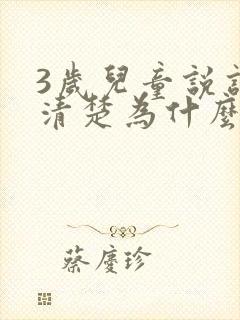 3歲兒童說
清楚為什麼
蔡慶珍